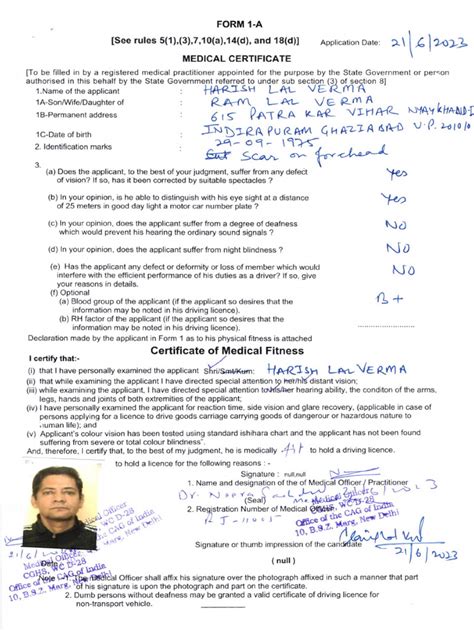 FORM 1-A
[See rules 5(1),(3),7,10(a),14(d), and 18(d)] Application Date: 21/6/2023
MEDICAL CERTIFICATE
[To be filled in by a registered medical practitioner appointed for the purpose by the State Government or person
authorised in this behalf by the State Government referred to under sub section (3) of section 8]
1.Name of the applicant : HARISH LAL VERMA
1A-Son/Wife/Daughter of : RAM LAL VERMA
1B-Permanent address : 615 PATRAKAR VIHAR NYAYKHAND-I
INDIRAPURAM GHAZIABAD U.P. 201010
1C-Date of birth : 29-09-1975
2. Identification marks : Cut Scar on forehead
3.
(a) Does the applicant, to the best of your judgment, suffer from any defect
of vision? If so, has it been corrected by suitable spectacles ? Yes
(b) In your opinion, is he able to distinguish with his eye sight at a distance
of 25 meters in good day light a motor car number plate ? Yes
(c) In your opinion, does the applicant suffer from a degree of deafness
which would prevent his hearing the ordinary sound signals ? NO
(d) In your opinion, does the applicant suffer from night blindness ? NO
(e) Has the applicant any defect or deformity or loss of member which would
interfere with the efficient performance of his duties as a driver? If so, give
your reasons in details. NO
(f) Optional
(a) Blood group of the applicant (if the applicant so desires that the
information may be noted in his driving licence). B+
(b) RH factor of the applicant (if so desires that the
information may be noted in his driving licence).
Declaration made by the applicant in Form 1 as to his physical fitness is attached
Certificate of Medical Fitness
I certify that:-
(i) that I have personally examined the applicant Shri/Smt/Kum: HARISH LAL VERMA
(ii) that while examining the applicant I have directed special attention to her/his distant vision;
(iii) that while examining the applicant I have directed special attention to his/her hearing ability, the conditon of the arms,
legs, hands and joints of both extremities of the applicant;
(iv) I have personally examined the applicant for reaction time, side vision and glare recovery, (applicable in case of
persons applying for a licence to drive goods carriage carrying goods of dangerour or hazardous nature to
human life); and
(v) Applicant's colour vision has been tested using standard ishihara chart and the applicant has not been found
suffering from severe or total colour blindness".
And, therefore, I certify that, to the best of my judgment, he is medically fit to hold a driving licence.
to hold a licence for the following reasons : -
Signature : null,null
1. Name and designation of the of Medical Officer / Practitioner
Dr.
(Seal) Medical Officer
CGHS, WC D-28
2. Registration Number of Medical Officer
Office of the CAG of India
10, B.S.Z. Marg, New Delhi
Signature or thumb impression of the candidate
21/6/2023
( null )
Medical Officer
CGHS, WC D-28
Office of the CAG of India
10, B.S.Z. Marg, New Delhi
21/6/
Date
Note : 1. The Medical Officer shall affix his signature over the photograph affixed in such a manner that part
of his signature is upon the photograph and part on the certificate.
2. Dumb persons without deafness may be granted a valid certificate of driving licence for
non-transport vehicle.